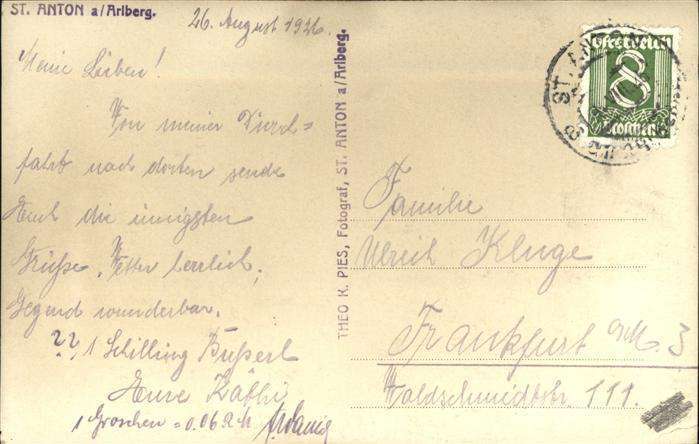 ST. ANTON a/Arlberg.
26. August 1926.
Meine Lieben!
Von meiner Durch=
fahrt nach dorten sende
Euch die innigsten
Grüße. Wetter herrlich,
Gegend wunderbar.
?? 1 Schilling Busserl
Eure Käthi
1 Groschen = 0.06
THEO K. PIES, Fotograf, ST. ANTON a/Arlberg.
Österreich
8
Groschen
ST. ANTON
Familie
Ulrich Kluge
Frankfurt a/M. 3
Waldschmidtstr. 111.